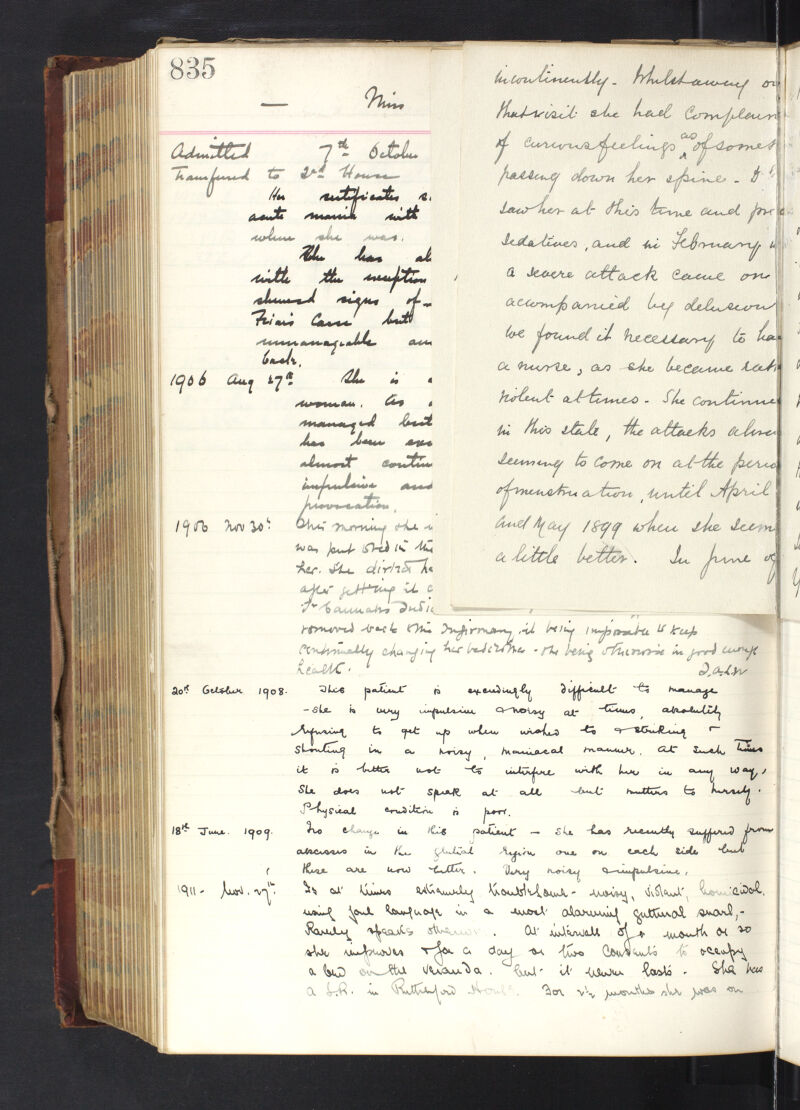 835
— Miss
Admitted 7th October
Transferred to 2nd House
Her certificates s
acute mania with
when she was.
She has al
with the exception
shewed signs of
Friars Carse but
unmanageable an
back.
1906 Aug 27th She is a
woman. As
managed but
has been exc
almost contin
impulsive and
provocation.
1906 Nov 30th This morning she w
was put to bed in the
her. She
after getting it
Tr Cannabis Indic
removed back to the Infirmary, it being impossible to keep
continually changing her bedclothes - she being otherwise in good enough
health.
20th October 1908. This patient is exceedingly difficult to manage
- she is very impulsive & noisy at times, absolutely
refusing to get up when wished to & striking &
shouting in a noisy, maniacal manner. At such times
it is better not to interfere with her in any way,
She does not speak at all but mutters to herself.
Physical condition is poor.
18th June. 1909. No change in this patient — She has recently suffered from
abscesses in the gluteal region one on each side but
these are now better. Very noisy & impulsive.
1911 - Nov. 27th. Is at times extremely troublesome - noisy, violent, homicidal,
using foul language in a most alarming guttural snarl, -
Rarely speaks otherwise. At intervals of a month or so
she improves & for a day or two consents to occupy
a bed on the veranda. but it never lasts. She has
a S.R. in Rutherford House. For 2½ months she was on
incontinently - Whilst away on
that visit she had complain
of curious feelings as of somet
passing down her spine - I
saw her at this time and pre
sedatives, and in February
a severe attack came on
accompanied by delusion
we found it necessary to ha
a nurse, as she became rath
violent at times - She continue
in this state, the attacks alwa
seeming to come on at the perio
of menstruation, until April
and May 1899 when she seem
a little better. In June of